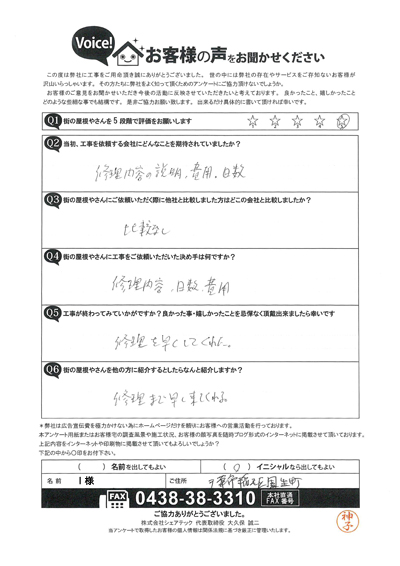 Voice!
お客様の声をお聞かせください
この度は弊社に工事をご用命頂き誠にありがとうございました。世の中には弊社の存在やサービスをご存知ないお客様が
沢山いらっしゃいます。その方たちに弊社をよく知って頂くためのアンケートにご協力頂けないでしょうか。
お客様のご意見をお聞かせいただき今後の活動に反映させていただきたいと考えております。良かったこと、嬉しかったこと
どのような些細な事でも結構です。是非ご協力お願い致します。出来るだけ具体的に書いて頂ければ幸いです。
Q1 街の屋根やさんを5段階で評価をお願いします ☆ ☆ ☆ ☆ ☆
Q2 当初、工事を依頼する会社にどんなことを期待されていましたか？
修理内容の説明、費用、日数
Q3 街の屋根やさんにご依頼いただく際に他社と比較しました方はどこの会社と比較しましたか？
比較なし
Q4 街の屋根やさんに工事をご依頼いただいた決め手は何ですか？
修理内容、日数、費用
Q5 工事が終わってみていかがですか？良かった事・嬉しかったことを忌憚なく頂戴出来ましたら幸いです
修理を早くしてくれた。
Q6 街の屋根やさんを他の方に紹介するとしたらなんと紹介しますか？
修理まで早く来てくれる。
＊弊社は広告宣伝費を極力かけない為にホームページだけを頼りにお客様への営業活動を行っております。
本アンケート用紙またはお客様宅の調査風景や施工状況、お客様の顔写真を随時ブログ形式のインターネットに掲載させて頂いております。
上記内容をインターネットや印刷物に掲載させて頂いてもよろしいでしょうか？
下記の中から〇印をお付下さい。
（ ）名前を出してもよい （○）イニシャルなら出してもよい
名前 I様 ご住所 千葉市稲毛区園生町
FAX 0438-38-3310 本社直通 FAX番号
ご協力ありがとうございました。
株式会社シェアテック 代表取締役 大久保 誠二
当アンケートで取得したお客様の個人情報は関係法規に基づき厳正に管理いたします。
神子